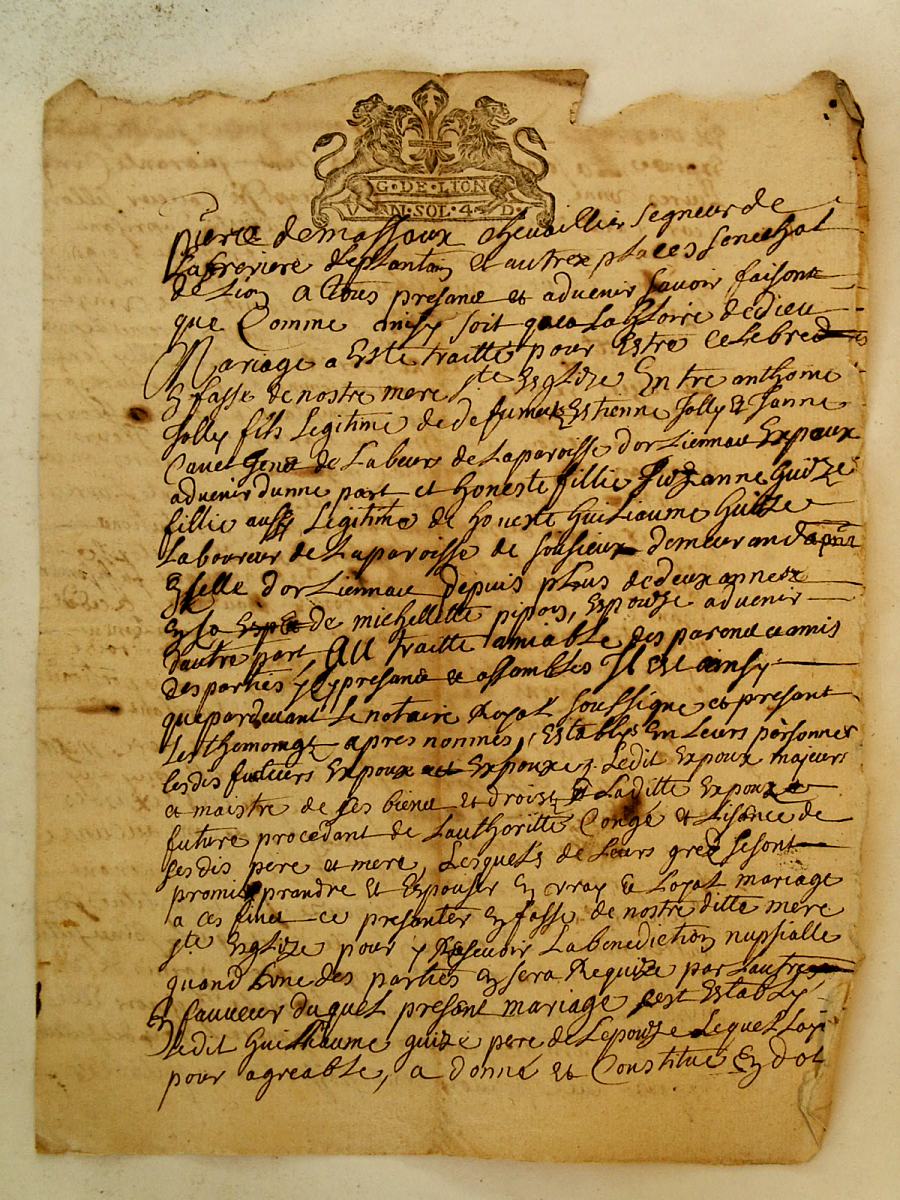 G·DE·LION
VN·SOL·4·D·
pierre demassaux chevaillier segneur de
Lafreviere Leplantain et autrex places senechal
de Lion a tous presans et advenir savoir faisont
que Comme ainsy soit qua La gloire de dieu
Mariage a Esté traitté pour Estre Celebred
En fasse de nostre mere ste Esglize Entre anthome
Jolly fils Legitime de defunct Estienne Jolly et Janne
gens de Labeur de Laparoisse dorLiennau Expaux
advenir dunne part et honeste fillie Suzanne Guize
fillie aussy Legitime de honeste Guilliaume Guitze
Laboureur de Laparoisse de sousieux demeurand apnt
En selle dorLiennau depuis plus de deux annees
En sa de michellette pipon, Expouze advenir
dautre part Au traitté amiable des parend et amis
des parties yci presans et assembles Il Est ainsy
que pardevant Le notaire Royal soussigne et presant
Les thémoings apres nommes, Establys En Leurs personnes
Lesdis futeurs Expoux et Expouxe, Ledit Expoux majeurs
et maistre de ses biens et droist et Laditte Expouze
future procedant de Lauthoritte Congé et Lisance de
sesdis pere et mere, Lesquels de Leurs gred se sont
promis prandre et Espouser En vray et Loyal mariage
a ces fins ce presanter En fasse de nostre ditte mere
ste Esglize pour y Resevoir La benediction nupsialle
quand Lune des parties En sera Requize par Lautre
En fauveur duquel presant mariage sest Estably
Ledit Guilliaume guize pere de Lepouze Lequel Layt
pour agreable, a donné et Constitué En dot